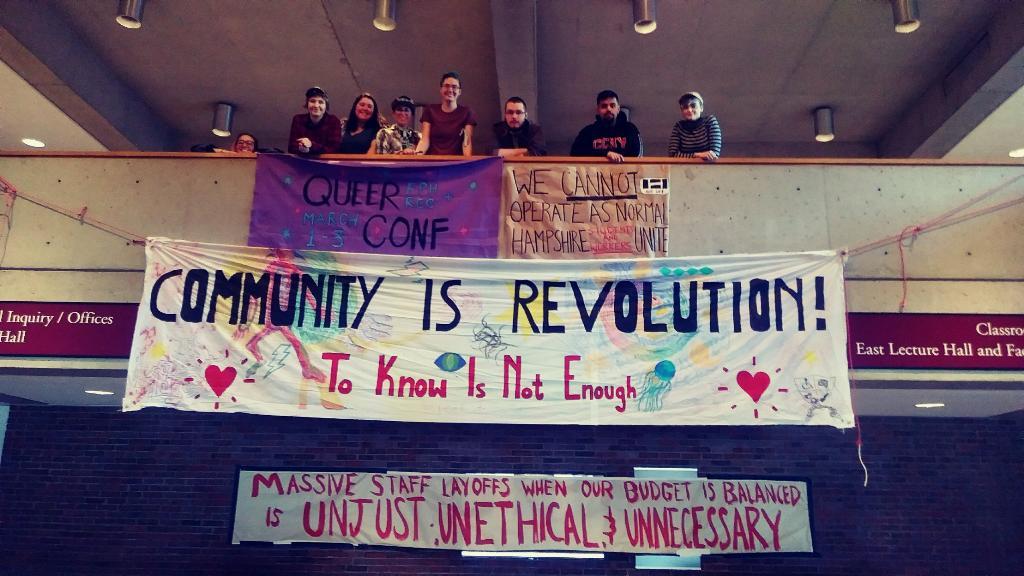 CCNY
QUEER FCH
REG +
MARCH
1-3 CONF
WE CANNOT
OPERATE AS NORMAL
STUDENTS
AND
HAMPSHIRE WORKERS UNITE
COMMUNITY IS REVOLUTION!
l Inquiry / Offices
Hall
Classro
East Lecture Hall and Fac
To Know Is Not Enough
MASSIVE STAFF LAYOFFS WHEN OUR BUDGET IS BALANCED
IS UNJUST, UNETHICAL, & UNNECESSARY